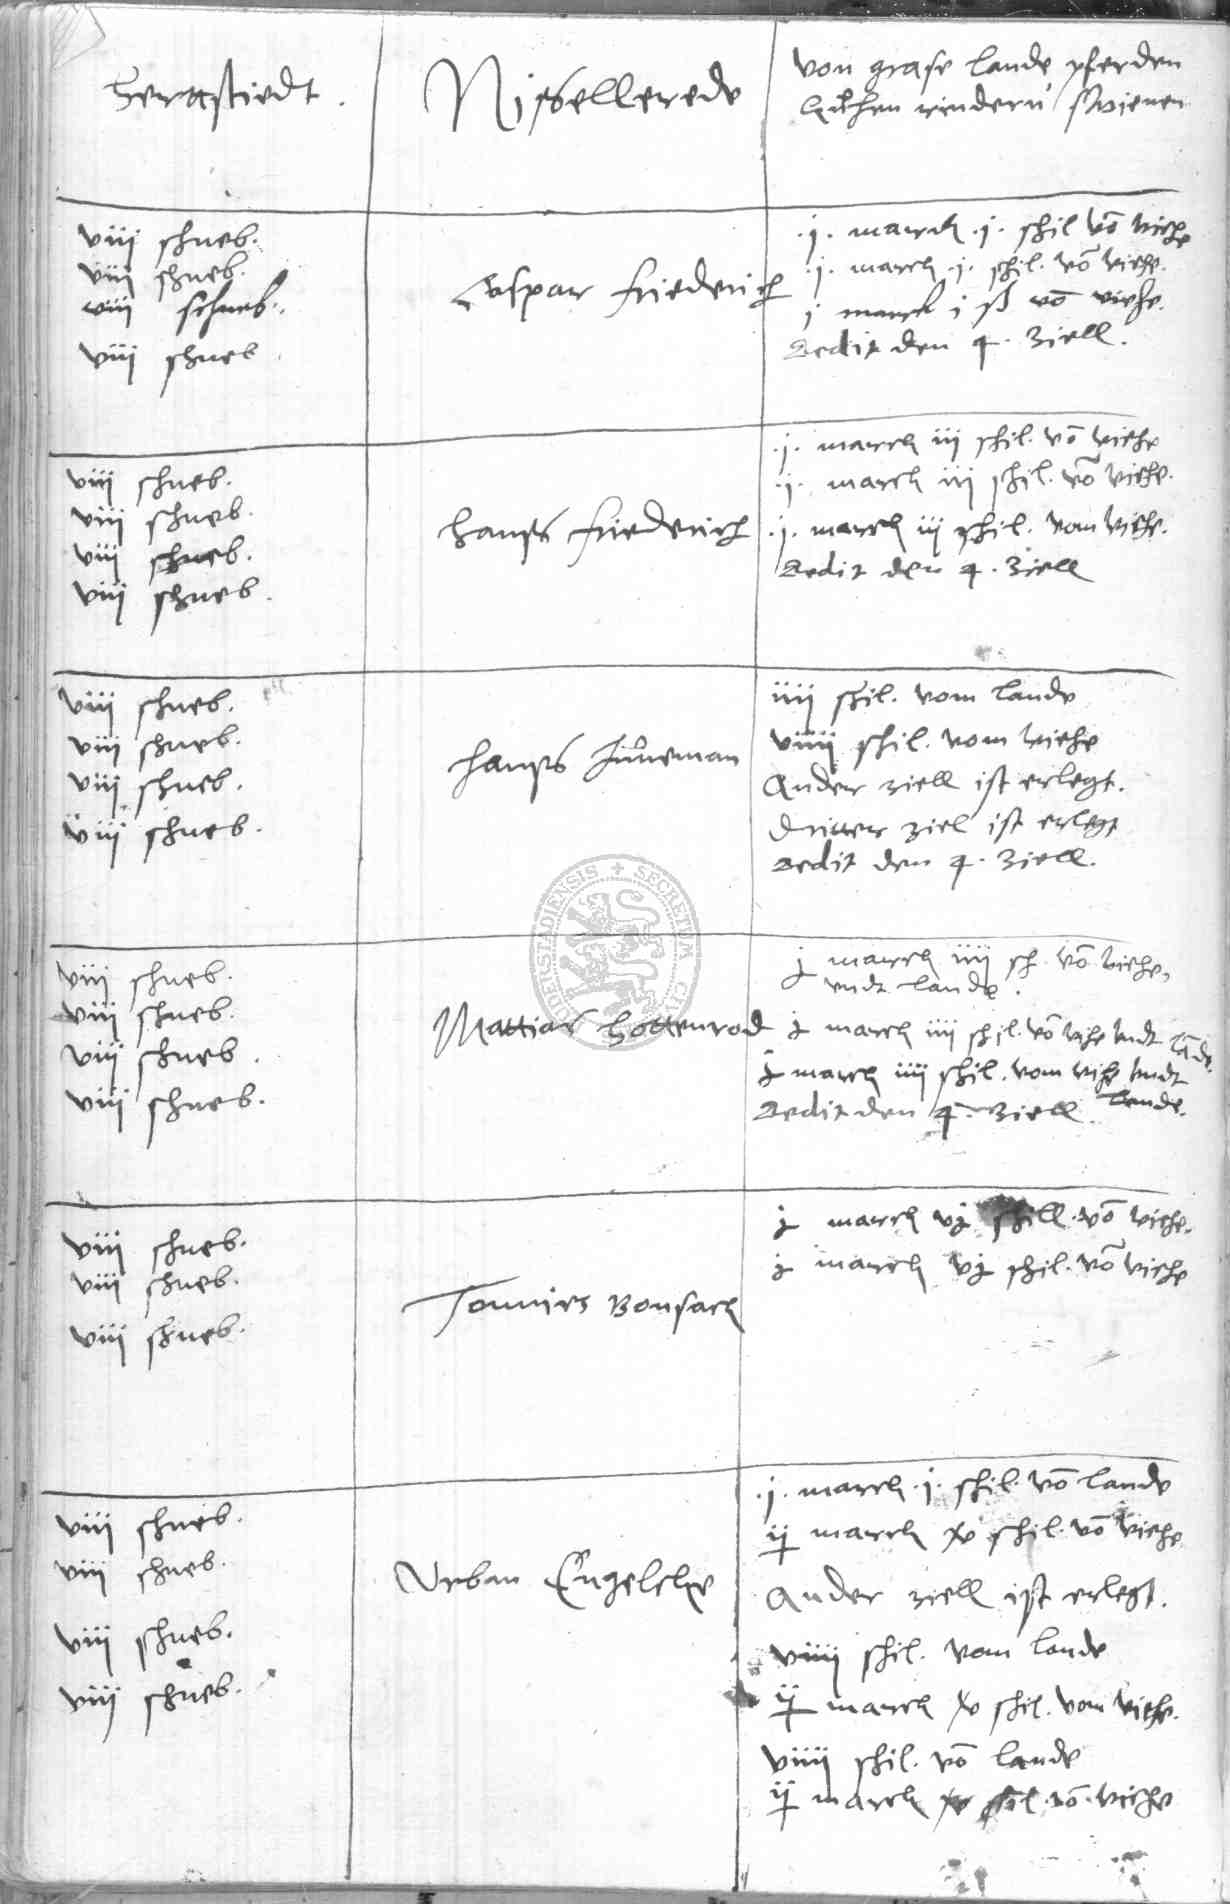 Herttstiedt.
Nissellerede
von grase lande pferden
kuhen rindern schwienen
viii schneb.
viii schneb.
viii schneb.
viii schneb
Caspar friederich
.j. marck .j. schil võ viehe
.j. marck .j. schil. võ viehe.
j marck j ß võ viehe.
Dedit den 4. Ziell.
viii schneb.
viii schneb.
viii schneb.
viii schneb.
hanss friederich
.j. marck iij schil. võ viehe
.j. marck iij schil. võ viehe.
.j. marck iij schil. vom viehe.
Dedit den 4. Ziell
viii schneb.
viii schneb.
viii schneb.
viii schneb.
hanss Juneman
iiij schil. vom lande
viiij schil. vom viehe
Ander ziell ist erlegt.
Dritter ziel ist erlegt
Dedit den 4. Ziell.
SECRETUM
viii schneb.
viii schneb.
viii schneb.
viii schneb.
Mattias Hottenrod
j marck iiij sch. võ viehe,
undt lande.
j marck iiij schil. võ vihe undt lãde.
j marck iiij schil. vom vihe undt
lande.
Dedit den 4. Ziell.
viii schneb.
viii schneb.
viii schneb.
Tonnies Bonsack
j marck vj schill. võ viehe.
j marck vj schil. võ viehe
viii schneb.
viii schneb.
viii schneb.
viii schneb.
Urban Engelcke
.j. marck .j. schil. võ lande
ij marck xv schil. võ viehe
Ander ziell ist erlegt.
viiij schil. vom lande
ij marck xv schil. vom viehe.
viiij schil. võ lande
ij marck xv schil. võ. viehe